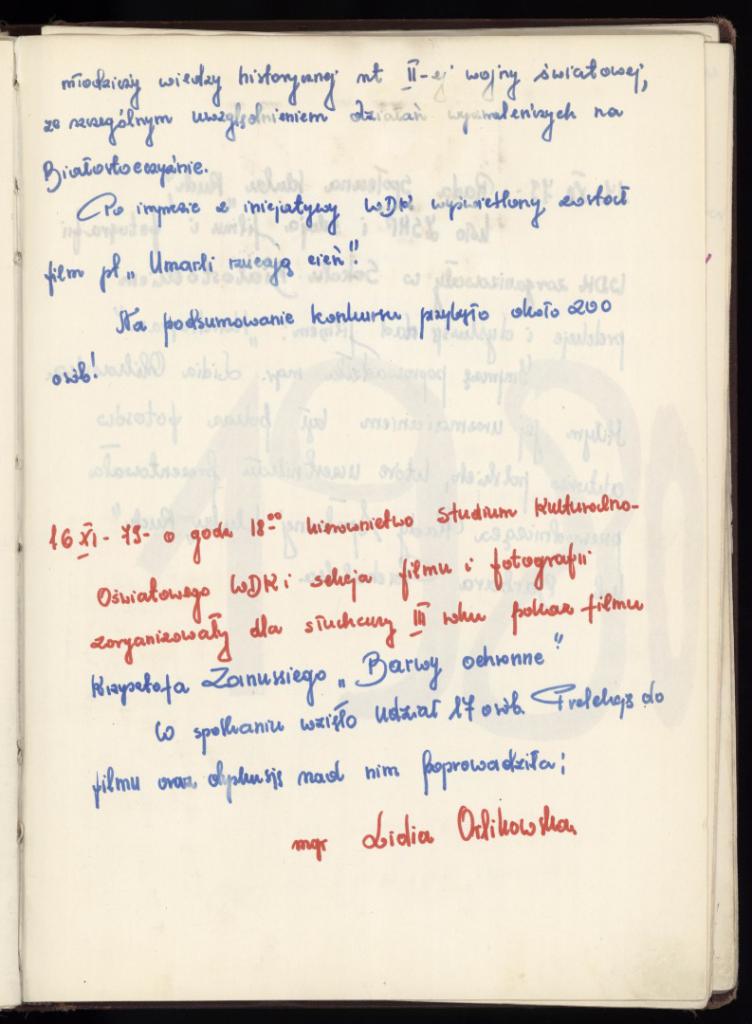 młodzieży wiedzy historycznej nt II-ej wojny światowej,
ze szczególnym uwzględnieniem działań wyzwoleńczych na
Białostocczyźnie.
Po imprezie z inicjatywy WDK wyświetlony został
film pt „Umarli rzucają cień".
Na podsumowanie konkursu przybyło około 200
osób!
16 XI - 79 - o godz 18⁰⁰ kierownictwo Studium Kulturalno-
Oświatowego WDK i sekcja filmu i fotografii
zorganizowały dla słuchczy III roku pokaz filmu
Krzysztofa Zanussiego „Barwy ochronne"
W spotkaniu wzięło udział 17 osób. Prelekcję do
filmu oraz dyskusję nad nim poprowadziła;
mgr Lidia Orlikowska